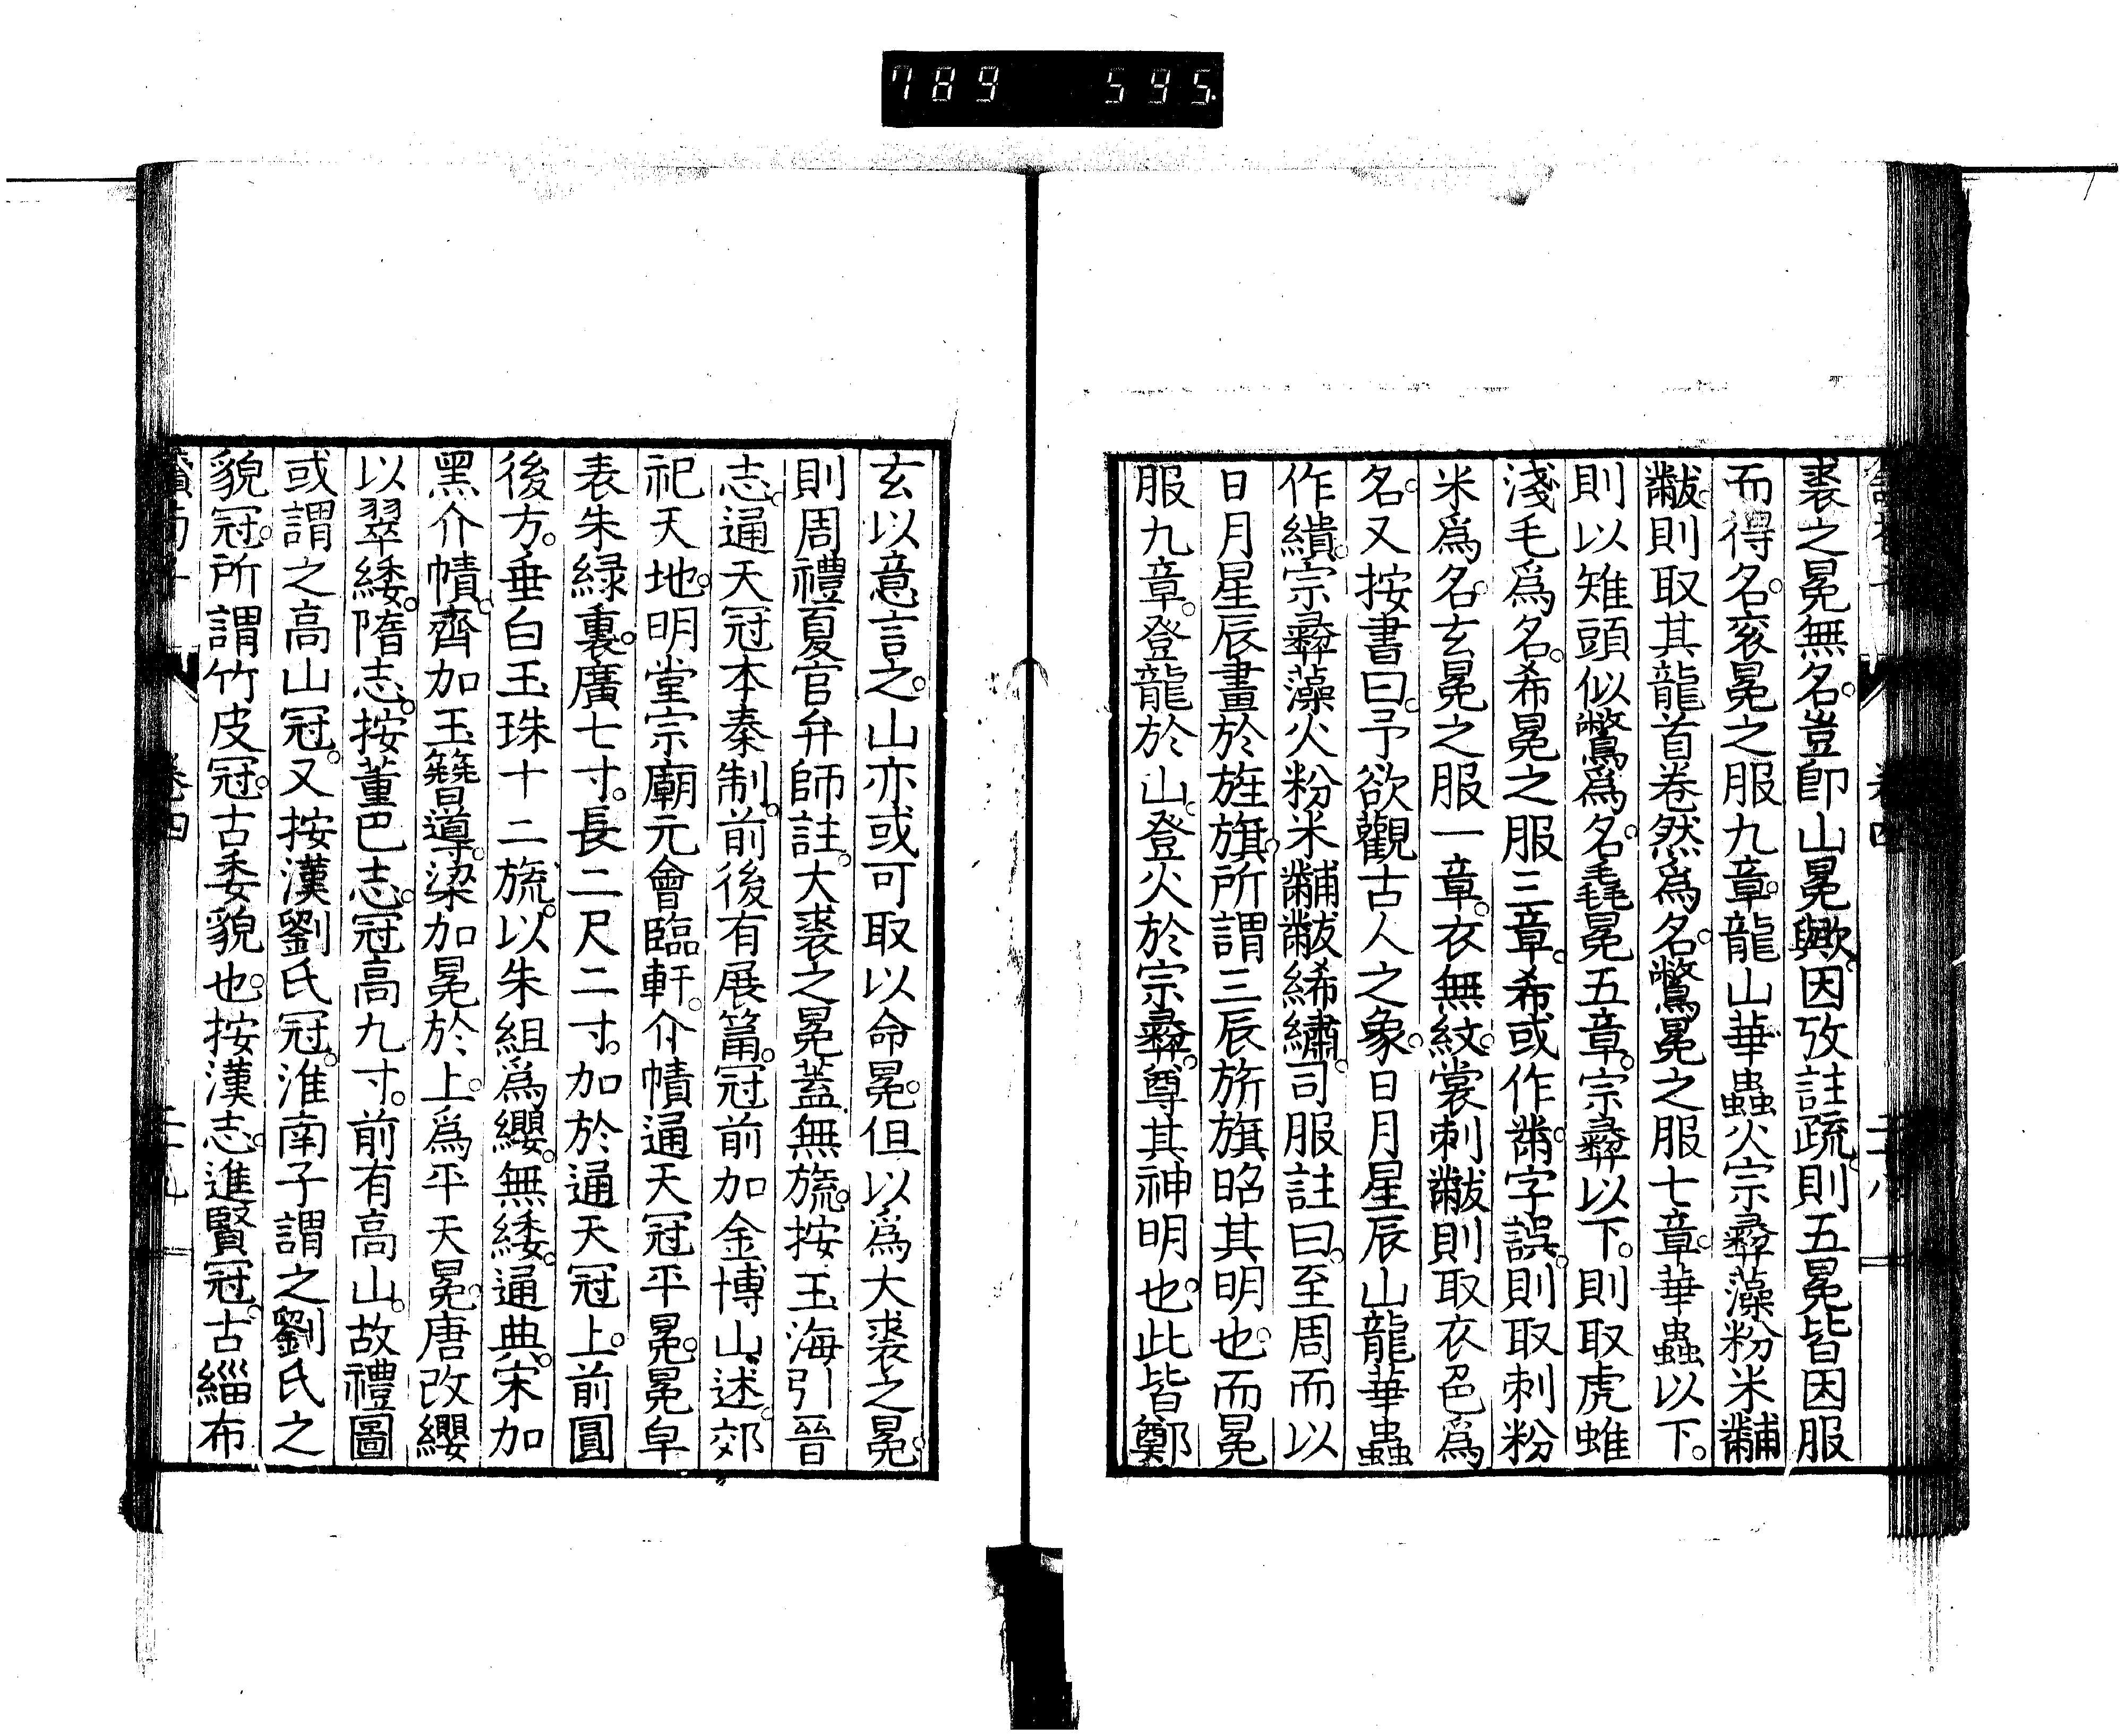 789 595
裘之冕無名。豈卽山冕歟。因攷註疏。則五冕皆因服
而得名。衮冕之服九章。龍山華蟲火宗彝藻粉米黼
黻。則取其龍首卷然爲名。鷩冕之服七章。華蟲以下。
則以雉頭似鷩爲名。毳冕五章。宗彝以下。則取虎蜼
淺毛爲名。希冕之服三章。希或作黹。字誤。則取刺粉
米爲名。玄冕之服一章。衣無紋。裳刺黻。則取衣色爲
名。又按書曰。予欲觀古人之象。日月星辰山龍華蟲
作繢。宗彝藻火粉米黼黻絺繡。司服註曰。至周而以
日月星辰畫於旌旗。所謂三辰旂旗昭其明也。而冕
服九章。登龍於山。登火於宗彝。尊其神明也。此皆鄭
玄以意言之。山亦或可取以命冕。但以爲大裘之冕。
則周禮夏官弁師註。大裘之冕蓋無旒。按玉海引晉
志。通天冠本秦制。前後有展筩。冠前加金博山述。郊
祀天地。明堂宗廟元會臨軒。介幘通天冠平冕。冕皁
表朱緑裏。廣七寸。長二尺二寸。加於通天冠上。前圓
後方。垂白玉珠十二旒。以朱組爲纓。無緌。通典。宋加
黑介幘。齊加玉簪導。梁加冕於上。爲平天冕。唐改纓
以翠緌。隋志。按董巴志。冠高九寸。前有高山。故禮圖
或謂之高山冠。又按漢劉氏冠。淮南子謂之劉氏之
貌冠。所謂竹皮冠。古委貌也。按漢志。進賢冠。古緇布
卷四